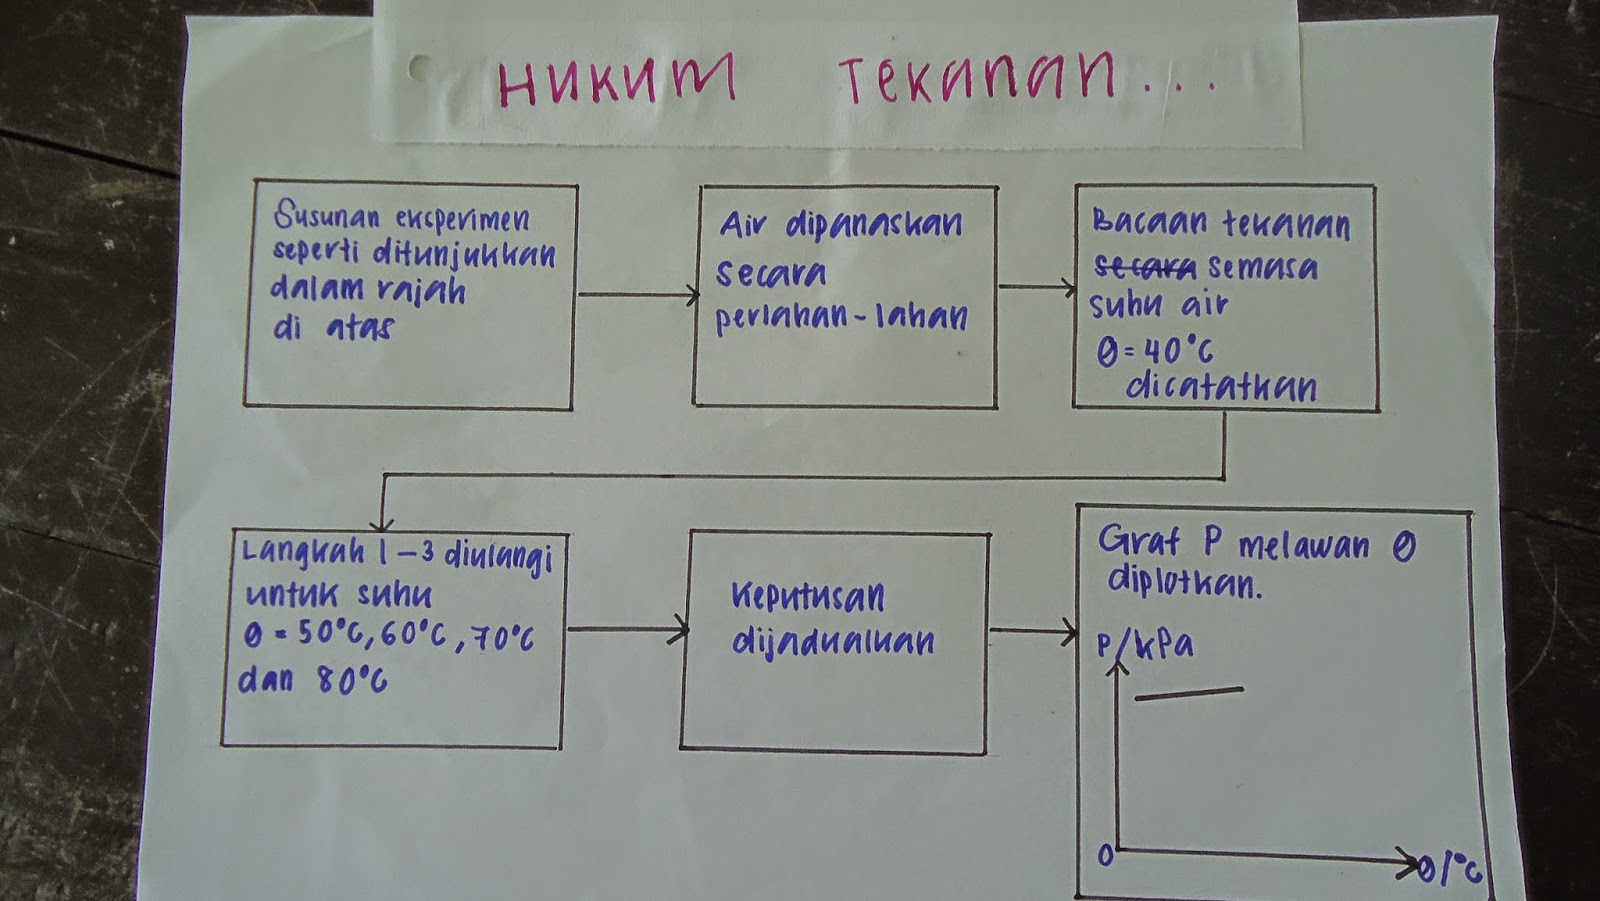 HUKUM TEKANAN...
Susunan eksperimen
seperti ditunjukkan
dalam rajah
di atas
Air dipanaskan
secara
perlahan-lahan
Bacaan tekanan
secara semasa
suhu air
θ = 40°C
dicatatkan
Langkah 1-3 diulangi
untuk suhu
θ = 50°C, 60°C, 70°C
dan 80°C
Keputusan
dijadualkan
Graf P melawan θ
diplotkan.
P/kPa
0
θ/°C